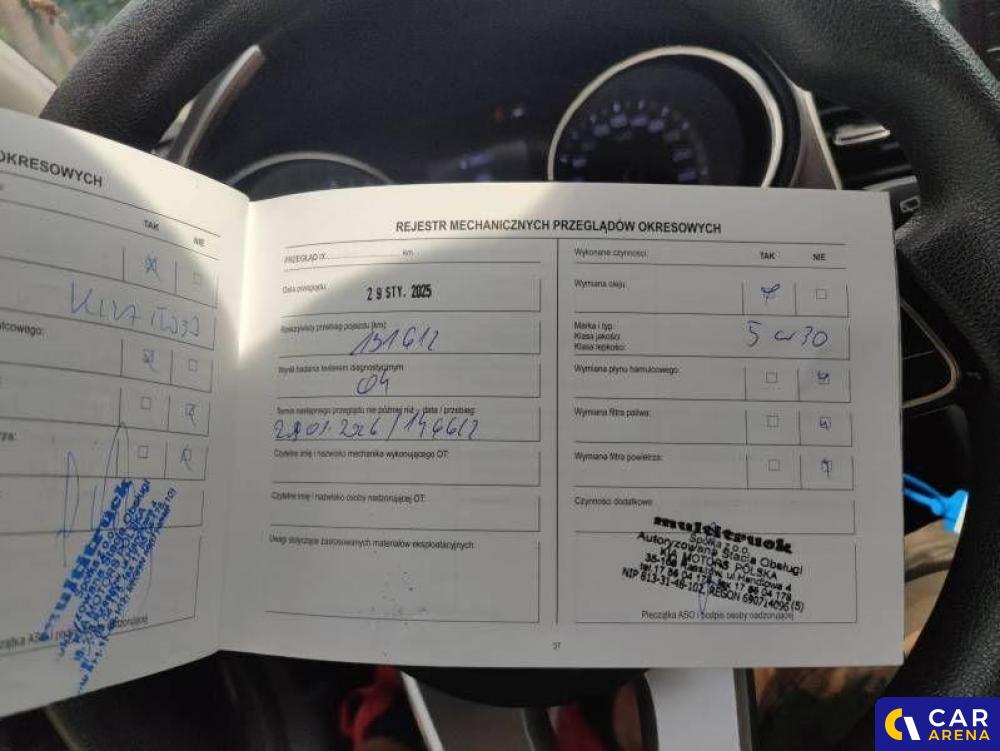 OKRESOWYCH
TAK NIE
REJESTR MECHANICZNYCH PRZEGLĄDÓW OKRESOWYCH
PRZEGLĄD IX km
Data przeglądu:
29 STY. 2025
Rzeczywisty przebieg pojazdu [km]:
131612
Wynik badania testerem diagnostycznym
Termin następnego przeglądu nie później niż - data / przebieg:
29.01.2026 / 146612
Czytelne imię i nazwisko mechanika wykonującego OT:
Czytelne imię i nazwisko osoby nadzorującej OT:
Uwagi dotyczące zastosowanych materiałów eksploatacyjnych:
Wykonane czynności: TAK NIE
Wymiana oleju:
Marka i typ:
Klasa jakości: 5w30
Klasa lepkości:
Wymiana płynu hamulcowego:
Wymiana filtra paliwa:
Wymiana filtra powietrza:
Czynności dodatkowe:
multitruck
Spółka z o.o.
Autoryzowana Stacja Obsługi
KIA MOTORS POLSKA
ul. Handlowa 4
NIP 813-31-46-102, REGON 690714096 (5)
Pieczątka ASO i podpis osoby nadzorującej
37
multitruck
CAR
ARENA